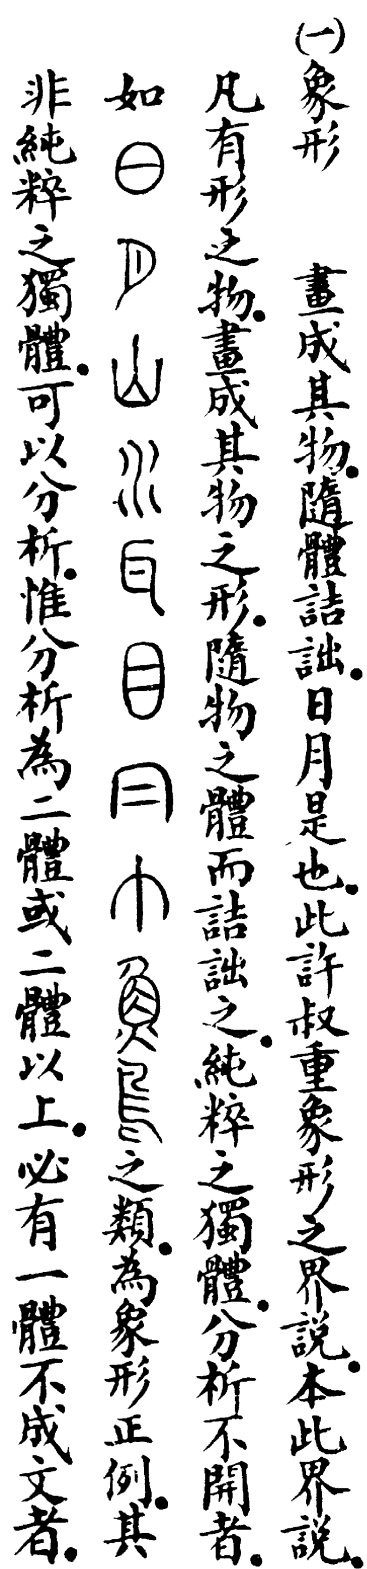 (一)象形　畫成其物。隨體詰詘。日月是也。此許叔重象形之界說。本此界說。
凡有形之物。畫成其物之形。隨物之體而詰詘之。純粹之獨體。分析不開者。
如日月山水目魚鳥之類。為象形正例。其
非純粹之獨體。可以分析。惟分析為二體或二體以上。必有一體不成文者。